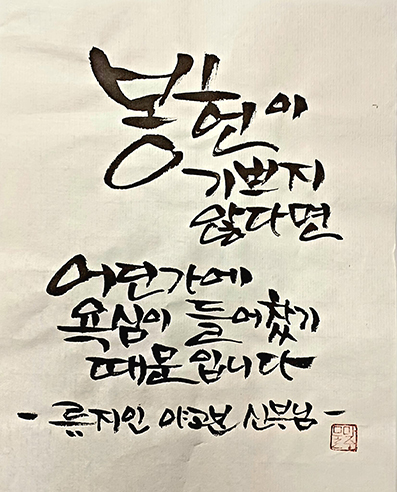 봉헌이
기쁘지
않다면
어딘가에
욕심이 들어찼기
때문입니다
- 류지인 야고보 신부님 -